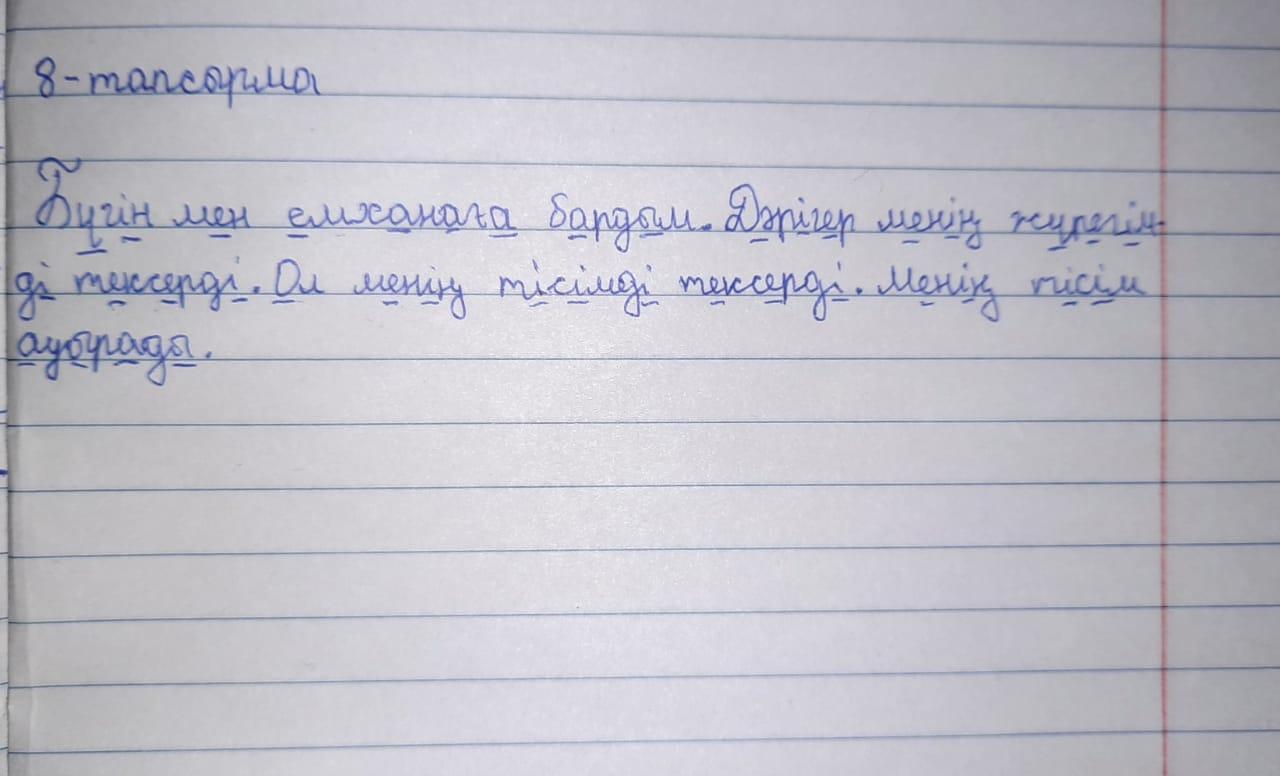 8-тапсырма
Бүгін мен емханаға бардым. Дәрігер менің жүрегім-
ді тексерді. Ол менің тісімді тексерді. Менің тісім
ауырады.